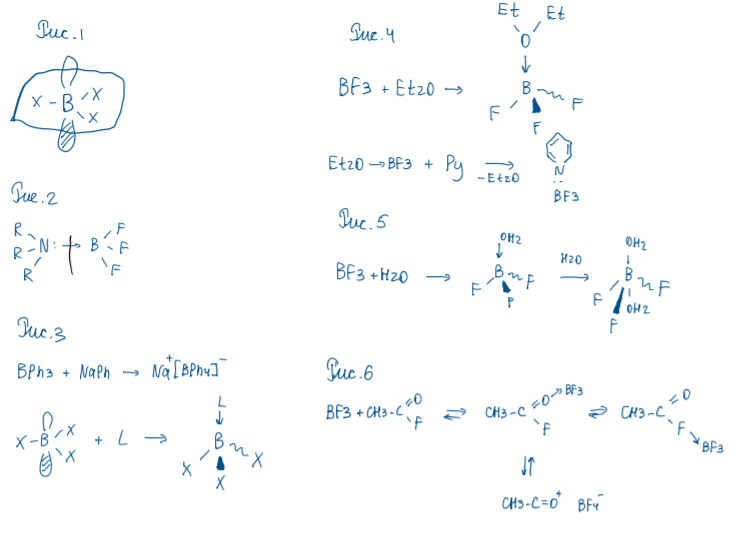 Рис.1
X - B X
X
Рис.2
R
R - N: → B F
R F
F
Рис.3
BPh3 + NaPh → Na⁺[BPh4]⁻
X - B X + L → L
X B
X X X
Рис.4
Et Et
O
BF3 + Et2O → B
F F
F
Et2O → BF3 + Py → N
-Et2O
BF3
Рис.5
OH2 OH2
BF3 + H2O → B F H2O → B F
F F OH2
F F
Рис.6
BF3 + CH3-C=O ⇌ CH3-C=O→BF3 ⇌ CH3-C=O
F F F→BF3
⇵
CH3-C=O⁺ BF4⁻